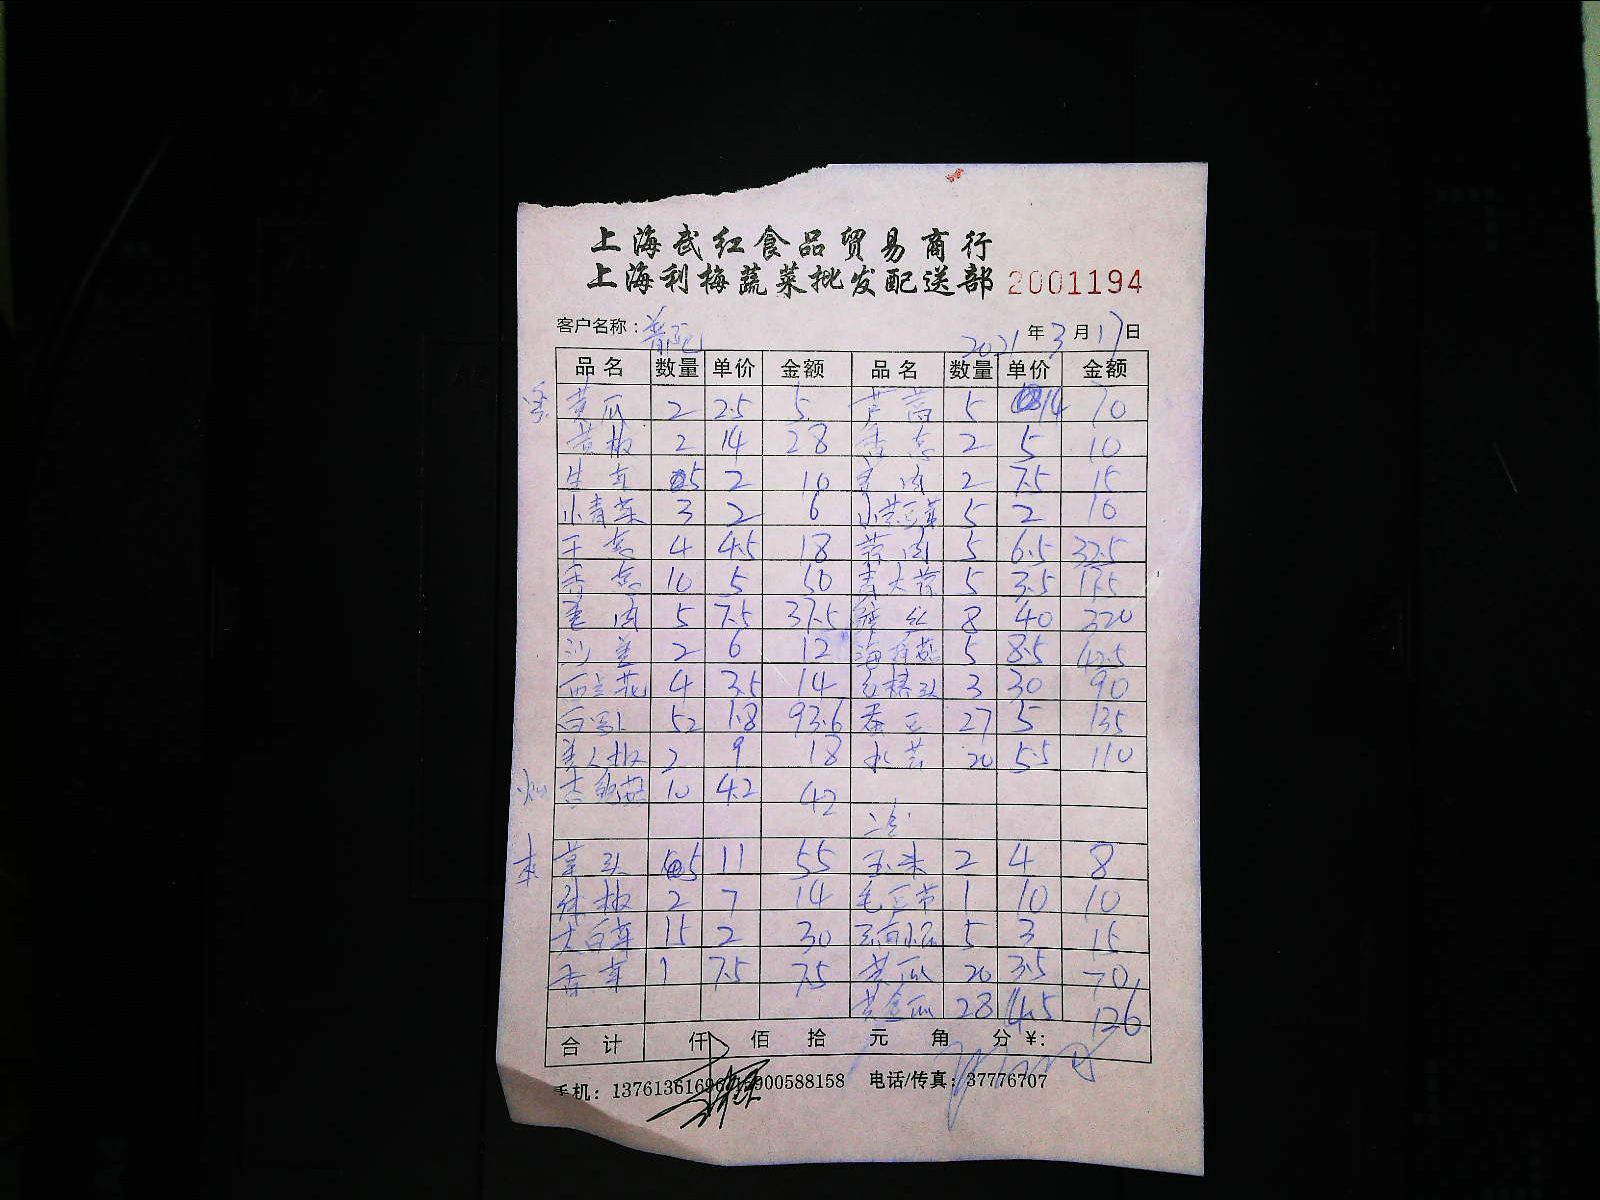 上海武红食品贸易商行
上海利梅蔬菜批发配送部 2001194
客户名称: 2021年3月17日
品名 数量 单价 金额 品名 数量 单价 金额
黄瓜 2 2.5 5 芦蒿 5 14 70
2 14 28 香葱 2 5 10
生菜 5 2 10 姜肉 2 7.5 15
小青菜 3 2 6 小黄豆芽 5 2 10
干葱 4 4.5 18 蒜肉 5 6.5 32.5
香葱 10 5 50 青大蒜 5 3.5 17.5
姜肉 5 7.5 37.5 8 40 320
沙姜 2 6 12 海鲜菇 5 8.5 42.5
西兰花 4 3.5 14 3 30 90
52 1.8 93.6 蚕豆 27 5 135
美人椒 2 9 18 水芹 20 5.5 110
杏鲍菇 10 4.2 42
草头 5 11 55 玉米 2 4 8
2 7 14 毛豆节 1 10 10
大白菜 15 2 30 5 3 15
香菜 1 7.5 7.5 黄瓜 20 3.5 70
黄金瓜 28 4.5 126
合计 仟 佰 拾 元 角 分 ¥:
手机: 1376136169 900588158 电话/传真: 37776707